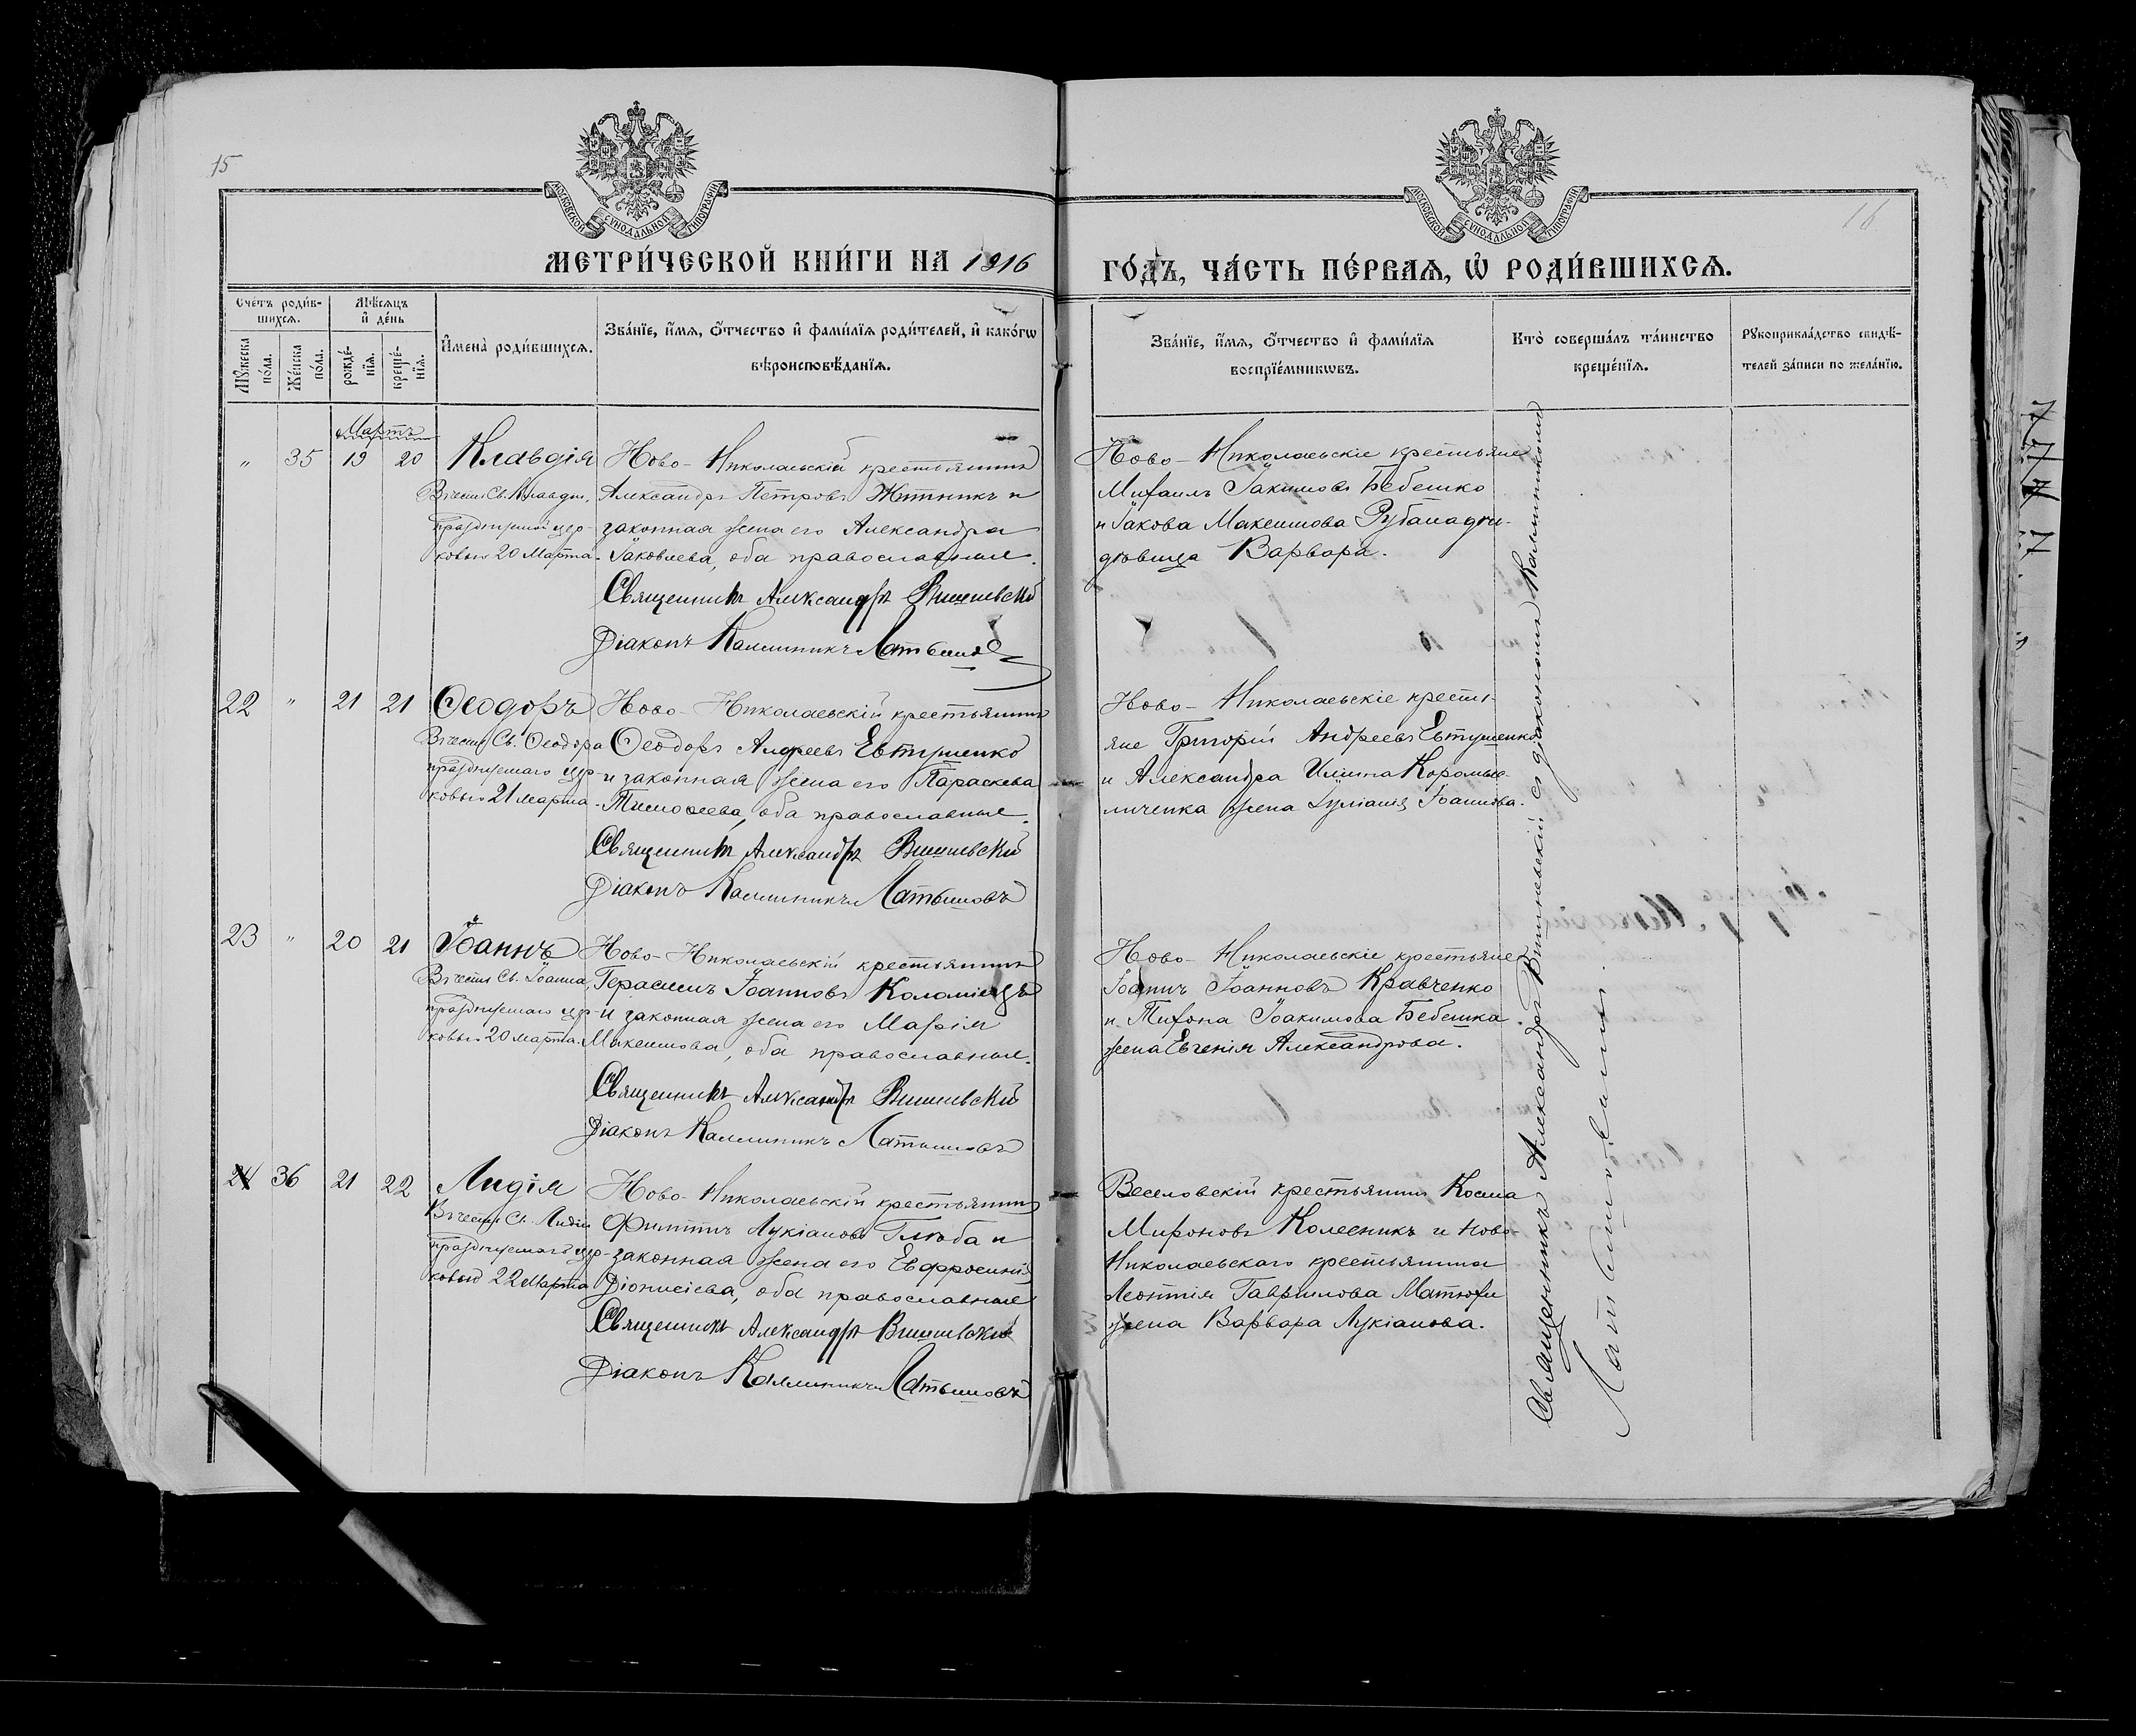 15
16
МОСКОВСКОЙ СУНОДАЛЬНОЙ ТИПОГРАФІИ
МОСКОВСКОЙ СУНОДАЛЬНОЙ ТИПОГРАФІИ
МЕТРИ́ЧЕСКОЙ КНИ́ГИ НА 1916
ГО́ДЪ, ЧА́СТЬ ПЕ́РВАѦ, Ѡ҆ РОДИ́ВШИХСѦ.
Сче́тъ роди́в-
шихсѧ.
Мѣ́сѧцъ
и҆ де́нь
Мꙋ́жеска
по́ла.
Же́нска
по́ла.
рожде́-
нїѧ.
креще́-
нїѧ.
И҆мена̀ роди́вшихсѧ.
Зва́нїе, и҆́мѧ, ѻ҆́тчество и҆ фами́лїѧ роди́телей, и҆ како́гѡ
вѣроисповѣ́данїѧ.
Зва́нїе, и҆́мѧ, ѻ҆́тчество и҆ фами́лїѧ
воспрїе́мникѡвъ.
Кто̀ соверша́лъ та́инство
креще́нїѧ.
Рꙋкоприкла́дство свидѣ́-
телей за́писи по жела́нїю.
Мартъ
" 35 19 20 Клавдія
Въ честь Св. Клавдіи,
празднуемой цер-
ковью 20 Марта.
Ново-Николаевскій крестьянинъ
Александръ Петровъ Житникъ и
законная жена его Александра
Іаковлева, оба православные.
Священникъ Александръ Вишневскій
Діаконъ Каллиникъ Латышовъ
Ново-Николаевскіе крестьяне
Михаилъ Іакимовъ Бебешко
и Іакова Максимова
дѣвица Варвара.
22 " 21 21 Ѳеодоръ
Въ честь Св. Ѳеодора
празднуемаго цер-
ковью 21 марта.
Ново-Николаевскій крестьянинъ
Ѳеодоръ Андреевъ Евтушенко
и законная жена его Параскева
Тимоѳеева, оба православные.
Священникъ Александръ Вишневскій
Діаконъ Каллиникъ Латышовъ
Ново-Николаевскіе кресть-
яне Григорій Андреевъ Евтушенко
и Александра Ильина Коромыс-
личенка жена Іуліанія Іоаннова.
23 " 20 21 Іоаннъ
Въ честь Св. Іоанна,
празднуемаго цер-
ковью 20 марта.
Ново-Николаевскій крестьянинъ
Герасимъ Іоанновъ Коломіецъ
и законная жена его Марія
Максимова, оба православные.
Священникъ Александръ Вишневскій
Діаконъ Каллиникъ Латышовъ
Ново-Николаевскіе крестьяне
Іоаннъ Іоанновъ Кравченко
и Тихона Іоакимова Бебешка
жена Евгенія Александрова.
24 36 21 22 Лидія
Въ честь Св. Лидіи
празднуемой цер-
ковью 22 Марта
Ново-Николаевскій крестьянинъ
Филиппъ Лукіановъ Глюба и
законная жена его Евфросинія
Діонисіева, оба православные
Священникъ Александръ Вишневскій
Діаконъ Каллиникъ Латышовъ
Веселовскій крестьянинъ Косма
Мироновъ Колесникъ и Ново-
Николаевскаго крестьянина
Леонтія Гавриилова Матюхи
жена Варвара Лукіанова.
Священникъ Александръ Вишневскій съ діакономъ Каллиникомъ
Латышовымъ.